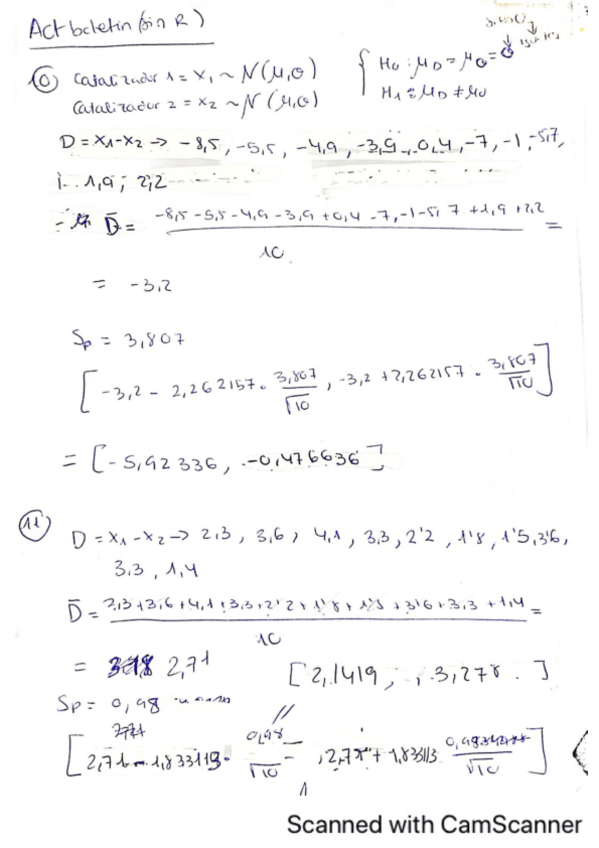 Act boletin (sin R)
10 Catalizador 1 = x₁ ~ N(μ,σ) { H₀ : μ_D = μ₀ = 0
Catalizador 2 = x₂ ~ N(μ,σ) H₁ = μ_D ≠ μ₀
D = x₁-x₂ → -8,5, -5,5, -4,9, -3,9, 0,4, -7, -1, -5,7,
1,9, 2,2
D̄ = -8,5 -5,5 -4,9 -3,9 +0,4 -7, -1 -5,7 +1,9 +2,2 =
10
= -3,2
Sp = 3,807
[-3,2 - 2,262157 · 3,807/√10, -3,2 + 2,262157 · 3,807/√10]
= [-5,92336, -0,476636]
11 D = x₁ - x₂ → 2,3, 3,6, 4,1, 3,3, 2'2, 1'8, 1'5, 3'6,
3,3, 1,4
D̄ = 2,3+3,6+4,1+3,3+2'2+1'8+1'5+3'6+3,3+1,4 =
10
= 2,71 [2,1419, , 3,278 ]
Sp = 0,98
[2,71 - 1,833113 · 0,98/√10, 2,71 + 1,83313 0,98/√10]
Scanned with CamScanner